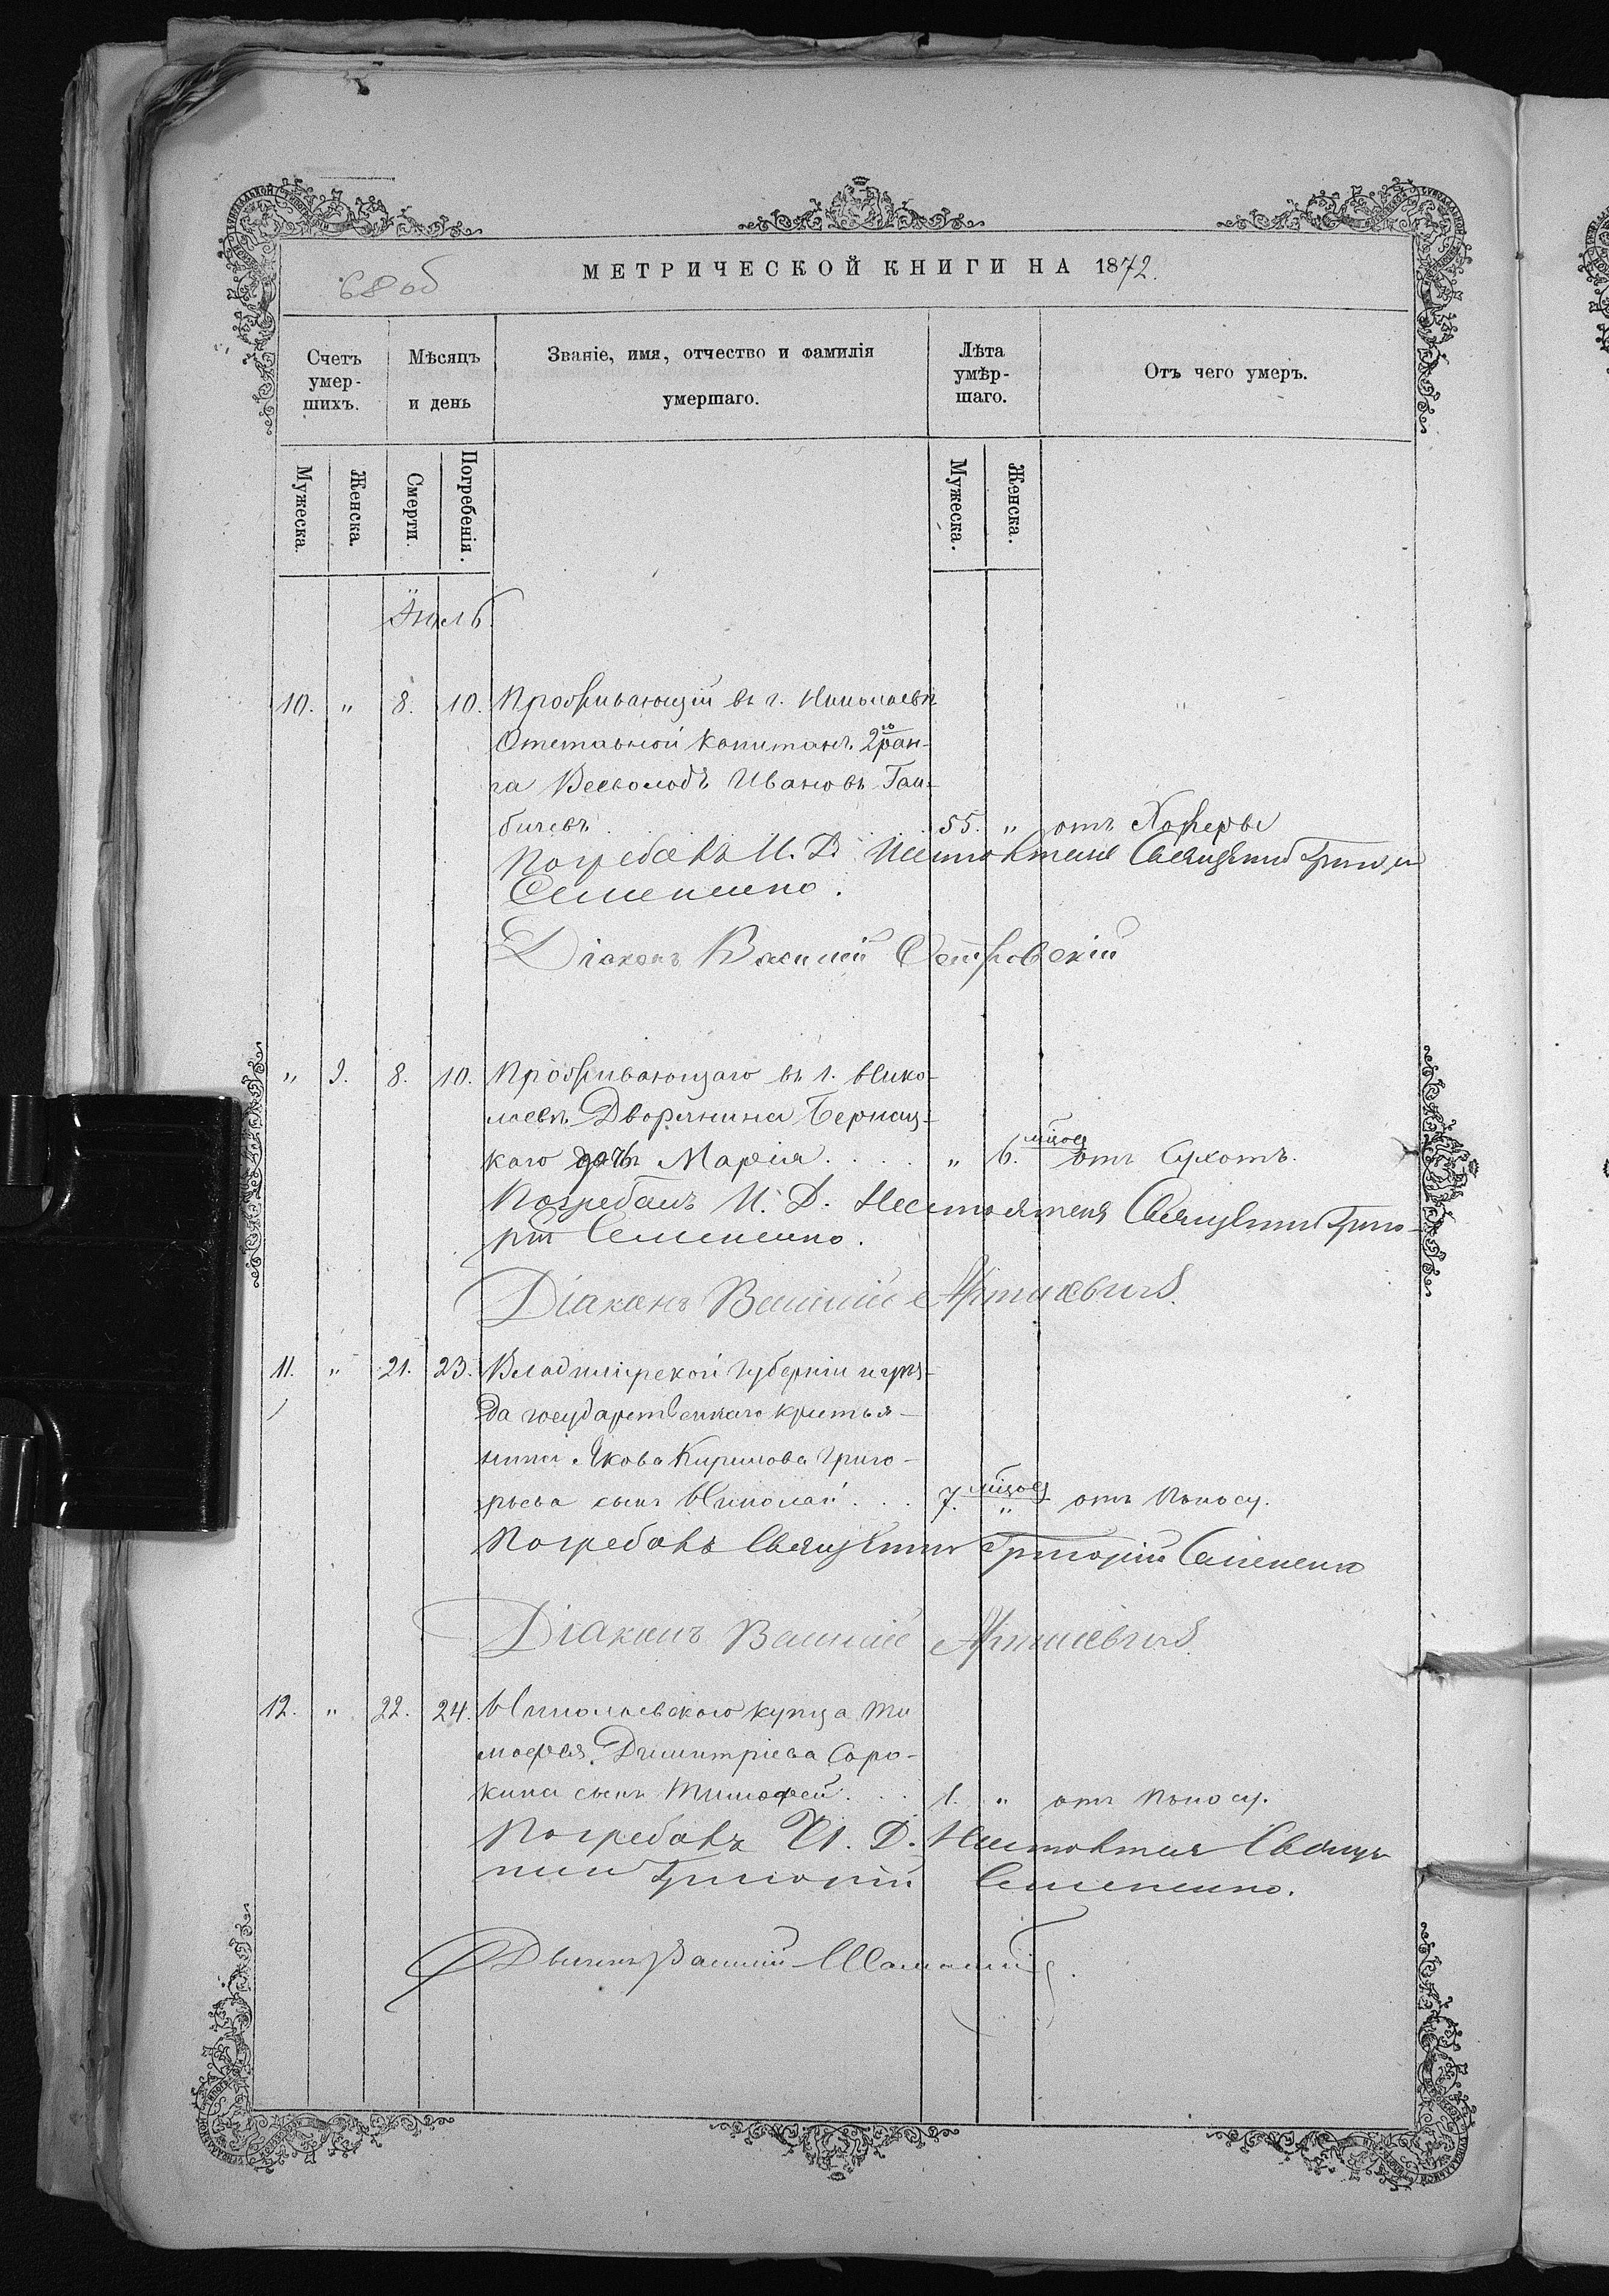 68 об
МЕТРИЧЕСКОЙ КНИГИ НА 1872.
Счетъ умер-шихъ.
Мѣсяцъ и день
Званіе, имя, отчество и фамилія умершаго.
Лѣта умѣр-шаго.
Отъ чего умеръ.
Мужеска.
Женска.
Смерти.
Погребенія.
Мужеска.
Женска.
Іюль.
10. " 8. 10. Проживающій въ г. Николаевѣ
Отставной Капитанъ 2го ран-
га Всеволодъ Ивановъ
бичевъ 55. " отъ Холеры
Погребалъ И. Д. Настоятеля Священникъ Григорій
Семененко.
Діаконъ Василій
" 9. 8. 10. Проживающаго въ г. Нико-
лаевѣ Дворянина Бернац-
каго дочь Марія. " 6. мѣсяц отъ Сухотъ.
Погребалъ И. Д. Настоятеля Священникъ Григо-
рій Семененко.
Діаконъ Василій
11. " 21. 23. Владимірской губерніи и уѣз-
да государственнаго кресть-я-
нина Якова Кирилова Григо-
рьева сынъ Николай 7. мѣсяц " отъ Поносу.
Погребалъ Священникъ Григорій Семененко
Діаконъ Василій
12. " 22. 24. Николаевскаго купца Ти
мофея Димитріева Соро-
кина сынъ Тимофей. 1. " отъ Поносу.
Погребалъ И. Д. Настоятеля Священ
никъ Григорій Семененко.
Василій